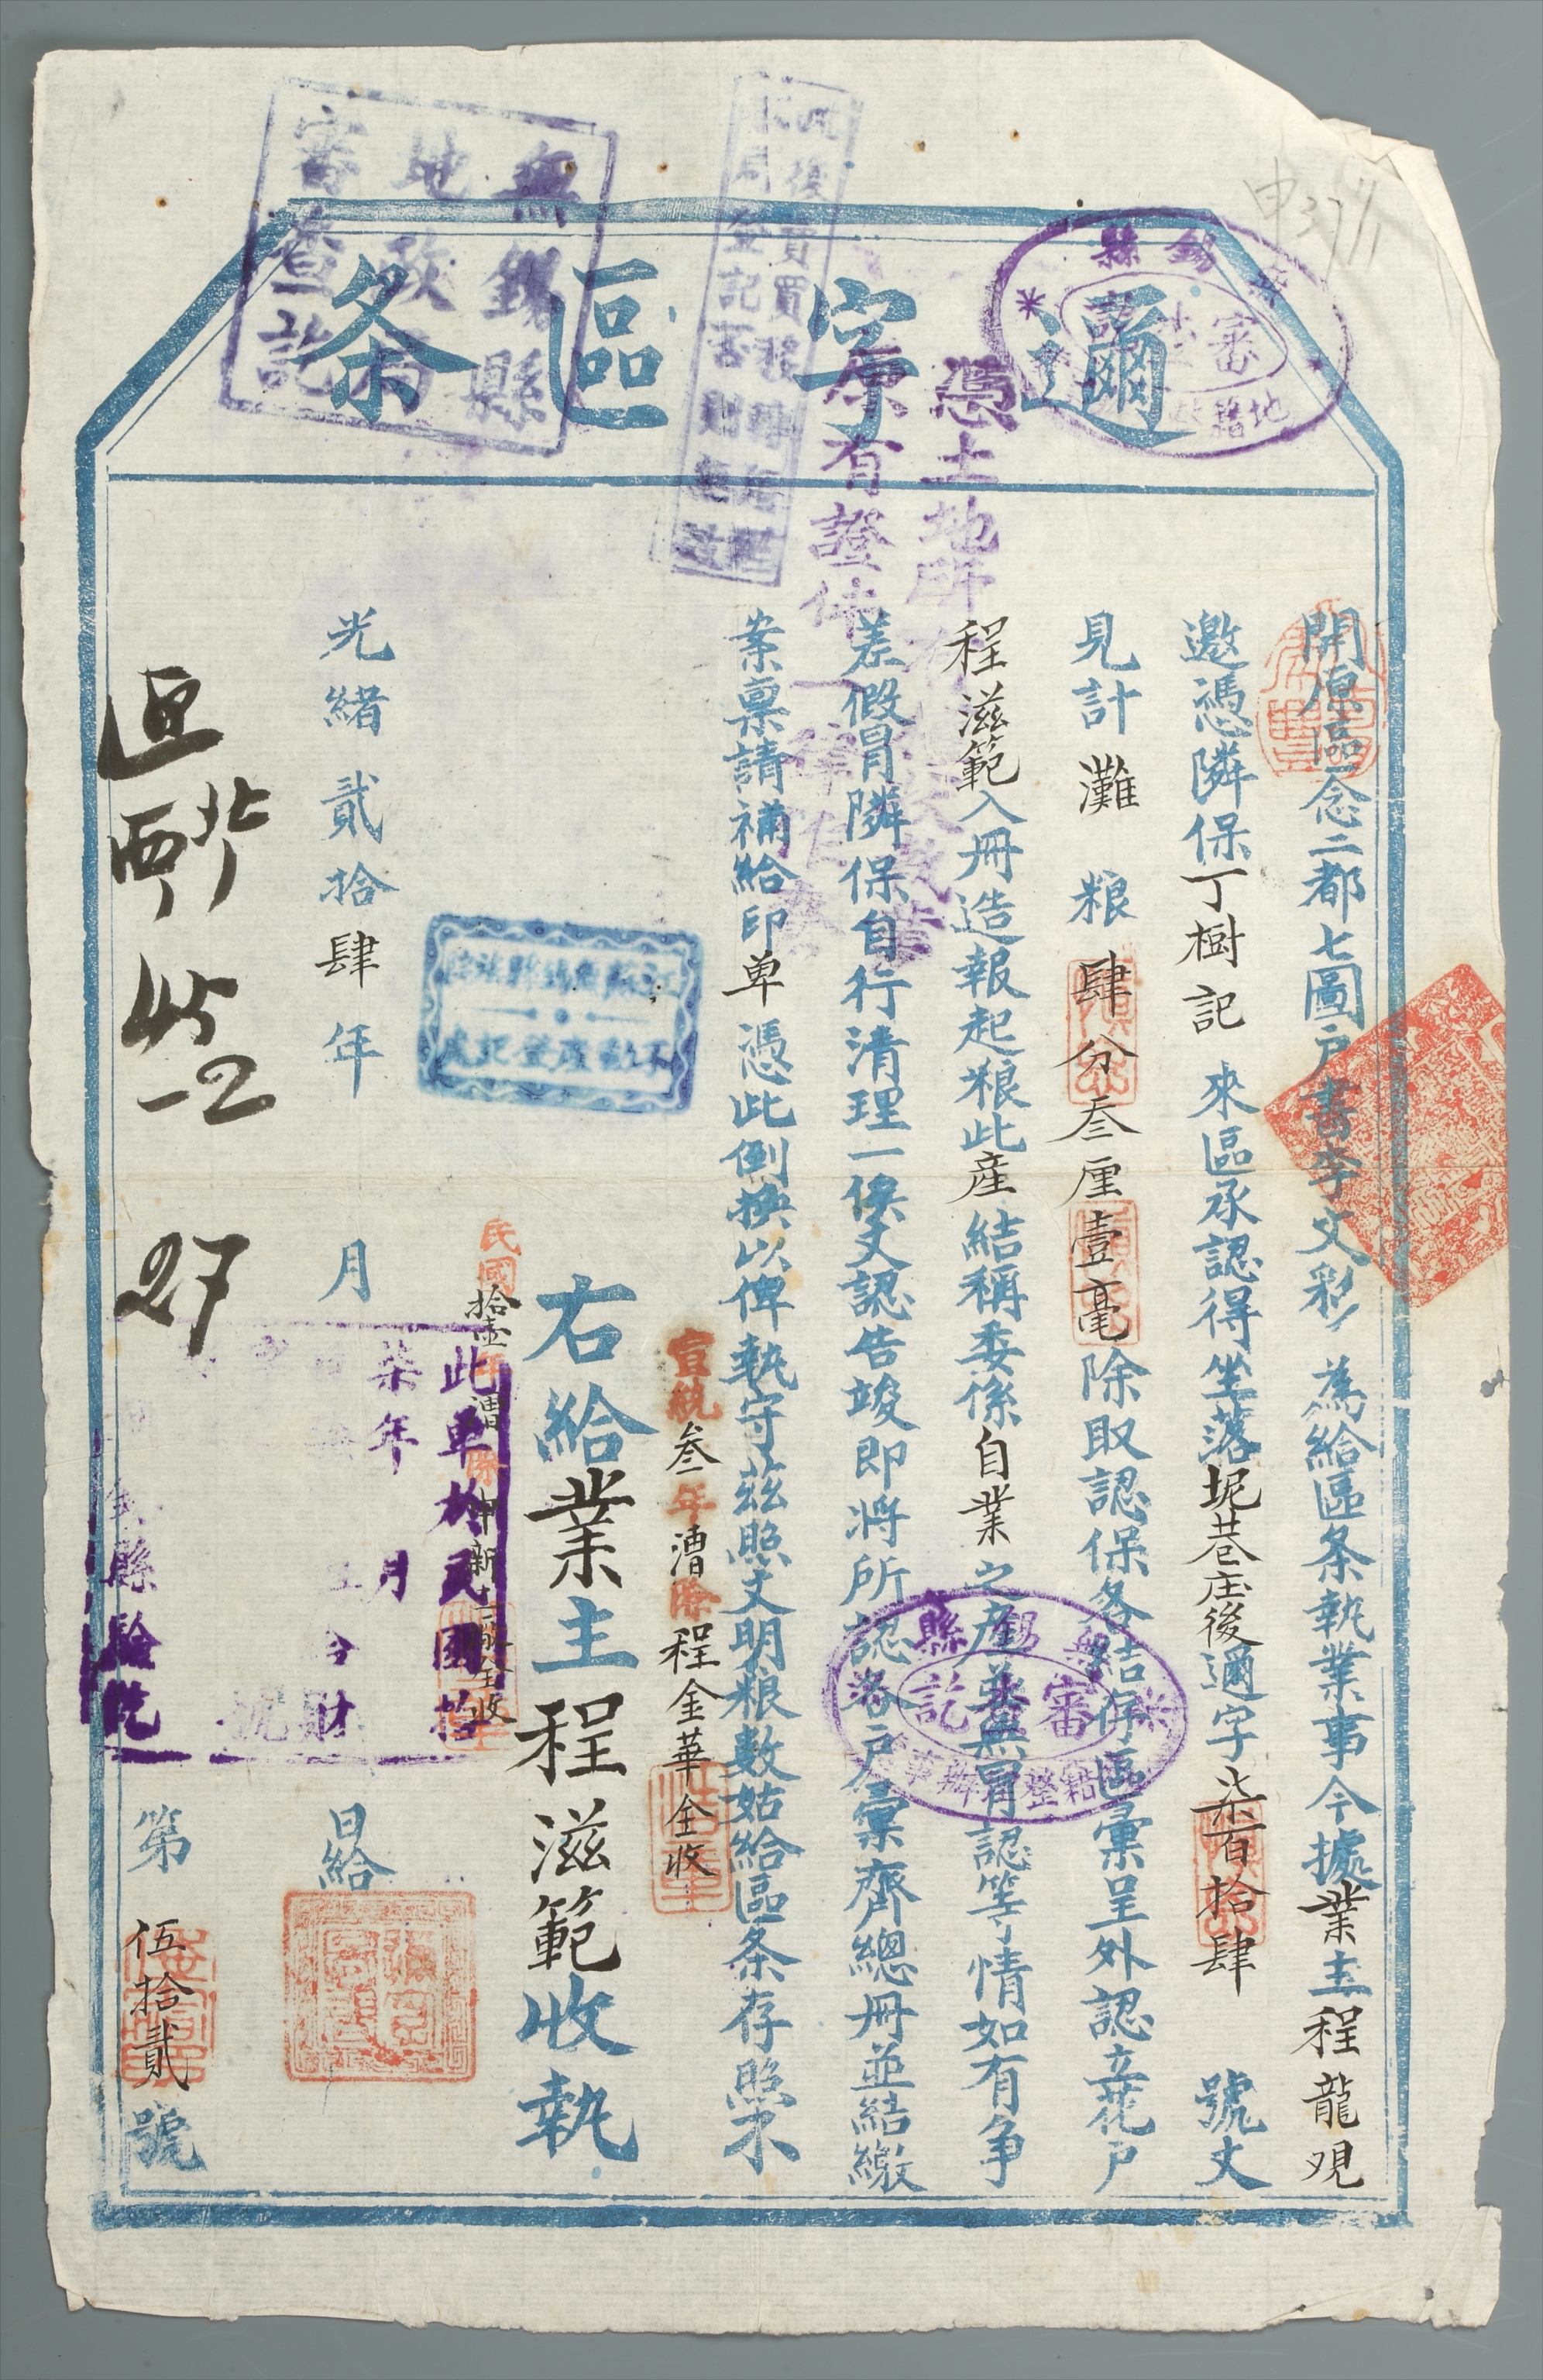 邇字區条
開原區念二都七圖戶書李文彩 為給區条執業事今據業主程龍观
邀憑隣保丁樹記 來區承認得坐落坭巷庄後邇字柒百拾肆 號丈
見計灘 粮肆分叁厘壹毫除取認保各結存區彙呈外認立花戶
程滋範入冊造報起粮此產結稱委係自業之產並無冒認等情如有争
差假冒隣保自行清理一俟丈認告竣即將所認各戶彙齊總冊並結繳
案稟請補給印单憑此倒换以俾執守茲照丈明粮數姑給區条存照不
宣統叁年漕除程金華全收
右給業主程滋範收執
民國拾壹年漕除
光緒貳拾肆年 月 日給
第伍拾貳號
27
無錫縣
地政局
審查訖
無錫縣
審訖
憑土地所有
原有證件
此单於民國
柒年 月
縣驗訖
申371